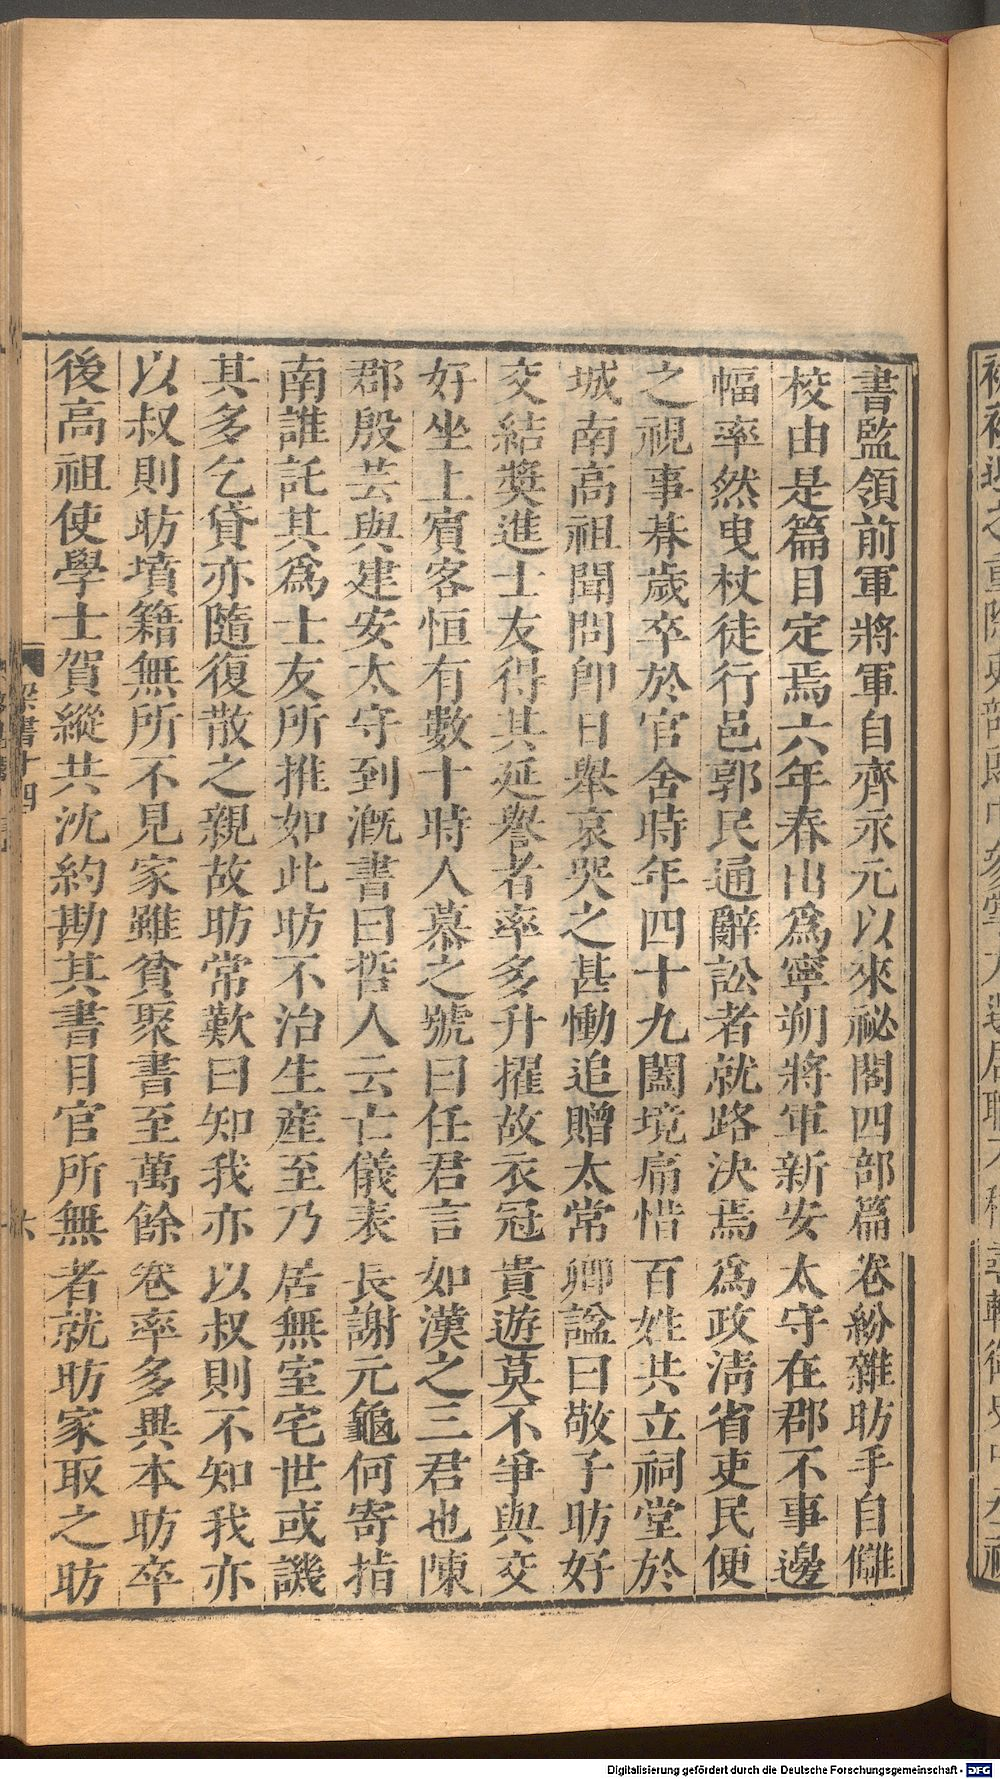 書監領前軍將軍自齊永元以來祕閣四部篇卷紛雜昉手自讎
校由是篇目定焉六年春出爲寧朔將軍新安太守在郡不事邊
幅率然曳杖徒行邑郭民通辭訟者就路決焉爲政清省吏民便
之視事朞歲卒於官舍時年四十九闔境痛惜百姓共立祠堂於
城南高祖聞問卽日舉哀哭之甚慟追贈太常卿諡曰敬子昉好
交結奬進士友得其延譽者率多升擢故衣冠貴遊莫不爭與交
好坐上賓客恒有數十時人慕之號曰任君言如漢之三君也陳
郡殷芸與建安太守到漑書曰哲人云亡儀表長謝元龜何寄指
南誰託其爲士友所推如此昉不治生產至乃居無室宅世或譏
其多乞貸亦隨復散之親故昉常歎曰知我亦以叔則不知我亦
以叔則昉墳籍無所不見家雖貧聚書至萬餘卷率多異本昉卒
後高祖使學士賀縱共沈約勘其書目官所無者就昉家取之昉
梁書十四
六
Digitalisierung gefördert durch die Deutsche Forschungsgemeinschaft - DFG